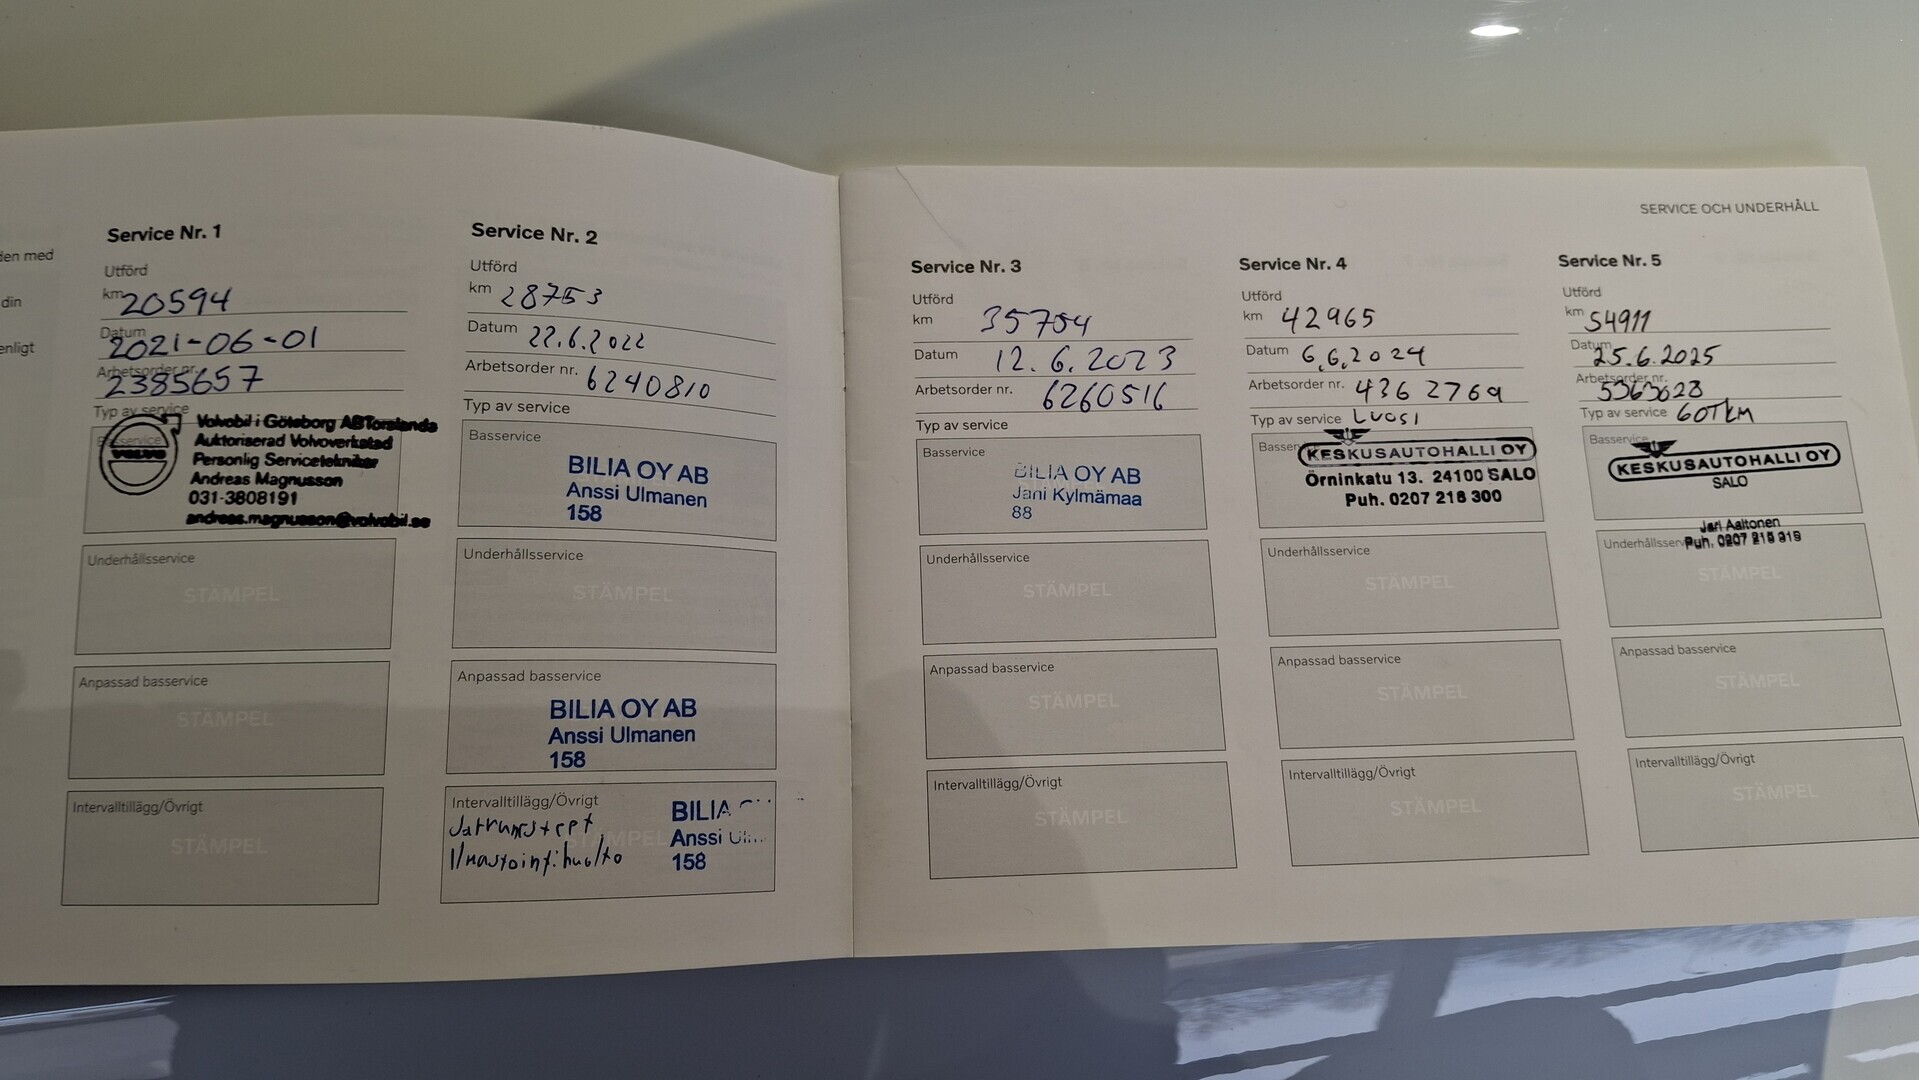 den med
din
enligt
Service Nr. 1
Utförd
km 20594
Datum 2021-06-01
Arbetsorder nr. 2385657
Typ av service
Basservice
VOLVO
Volvobil i Göteborg AB Torslanda
Auktoriserad Volvoverkstad
Personlig Servicetekniker
Andreas Magnusson
031-3808191
andreas.magnusson@volvobil.se
Underhållsservice
STÄMPEL
Anpassad basservice
STÄMPEL
Intervalltillägg/Övrigt
STÄMPEL
Service Nr. 2
Utförd
km 28753
Datum 22.6.2022
Arbetsorder nr. 6240810
Typ av service
Basservice
BILIA OY AB
Anssi Ulmanen
158
Underhållsservice
STÄMPEL
Anpassad basservice
BILIA OY AB
Anssi Ulmanen
158
Intervalltillägg/Övrigt
STÄMPEL
Ilmastointihuolto
BILIA
Anssi
158
SERVICE OCH UNDERHÅLL
Service Nr. 3
Utförd
km 35754
Datum 12.6.2023
Arbetsorder nr. 6260516
Typ av service
Basservice
BILIA OY AB
Jani Kylmämaa
88
Underhållsservice
STÄMPEL
Anpassad basservice
STÄMPEL
Intervalltillägg/Övrigt
STÄMPEL
Service Nr. 4
Utförd
km 42965
Datum 6.6.2024
Arbetsorder nr. 4362769
Typ av service Luosi
Basser
KESKUSAUTOHALLI OY
Örninkatu 13. 24100 SALO
Puh. 0207 218 300
Underhållsservice
STÄMPEL
Anpassad basservice
STÄMPEL
Intervalltillägg/Övrigt
STÄMPEL
Service Nr. 5
Utförd
km 54911
Datum 25.6.2025
Arbetsorder nr. 5363628
Typ av service 60TKM
Basservice
KESKUSAUTOHALLI OY
SALO
Jari Aaltonen
Underhållsser
Puh. 0207 218 319
STÄMPEL
Anpassad basservice
STÄMPEL
Intervalltillägg/Övrigt
STÄMPEL